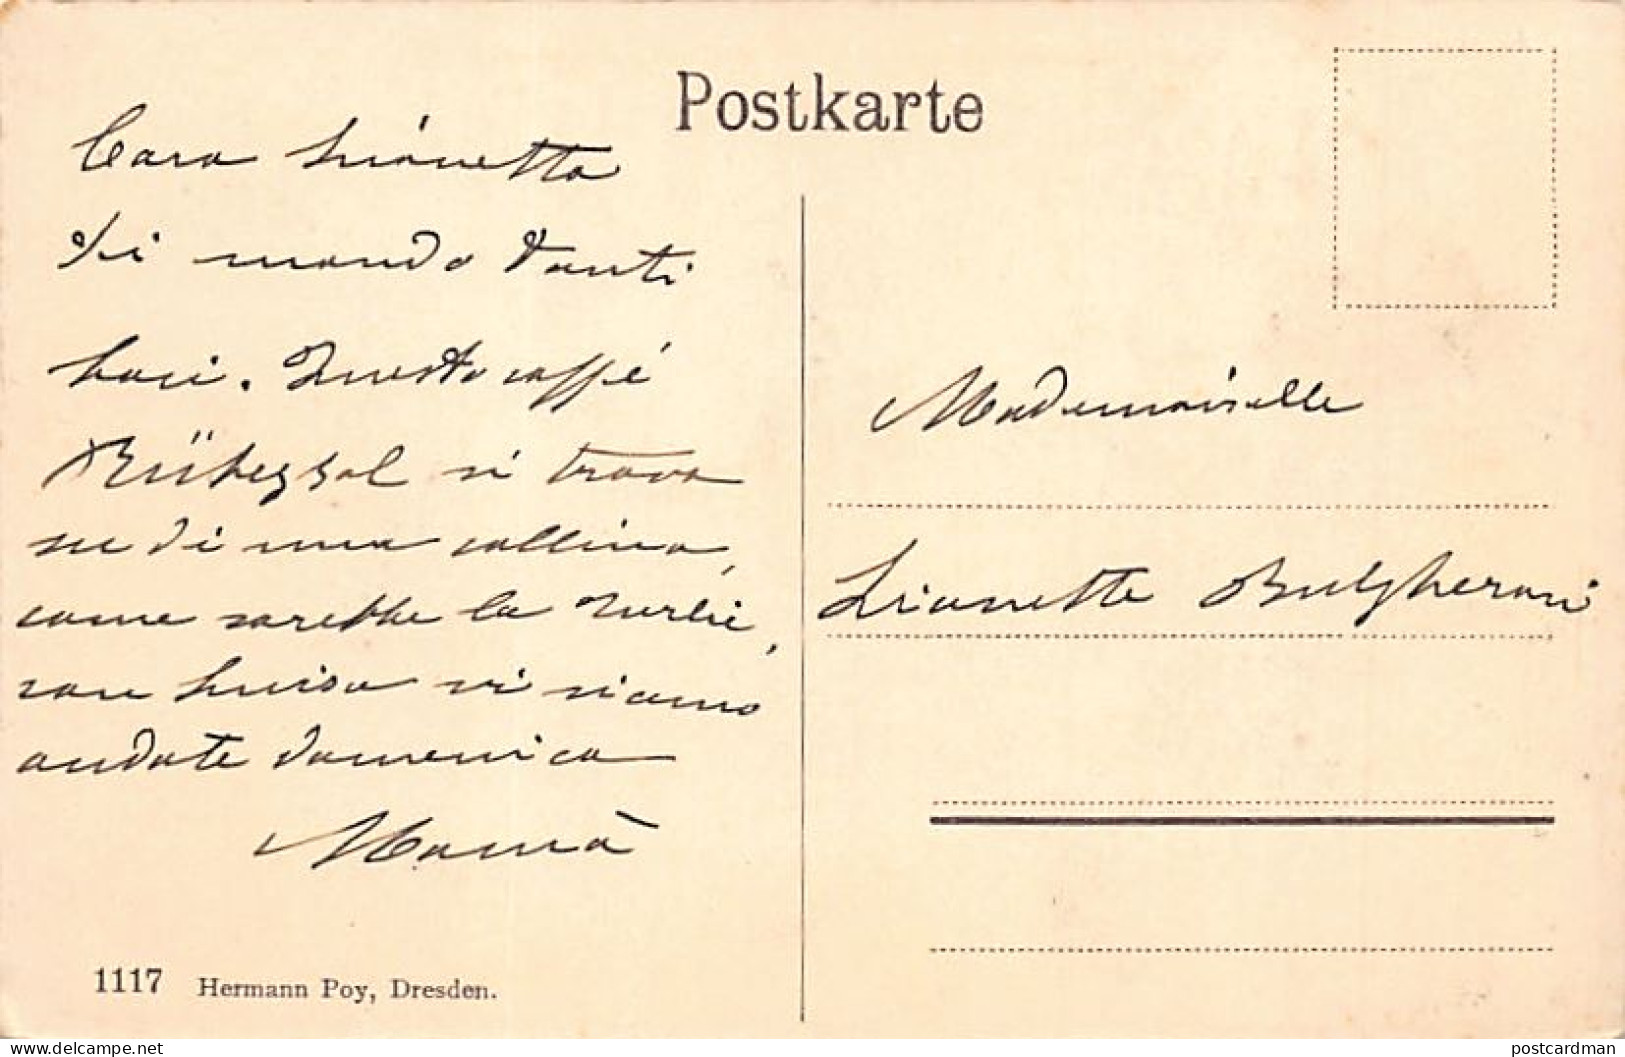 Postkarte
Cara Lionetta
Ti mando tanti
baci. Questo caffé
Rübezsal si trova
su di una collina,
come sarebbe la
con Luisa vi siamo
andate domenica
Mamà
Mademoiselle
Lionette Bulgheroni
1117 Hermann Poy, Dresden.
postcardman